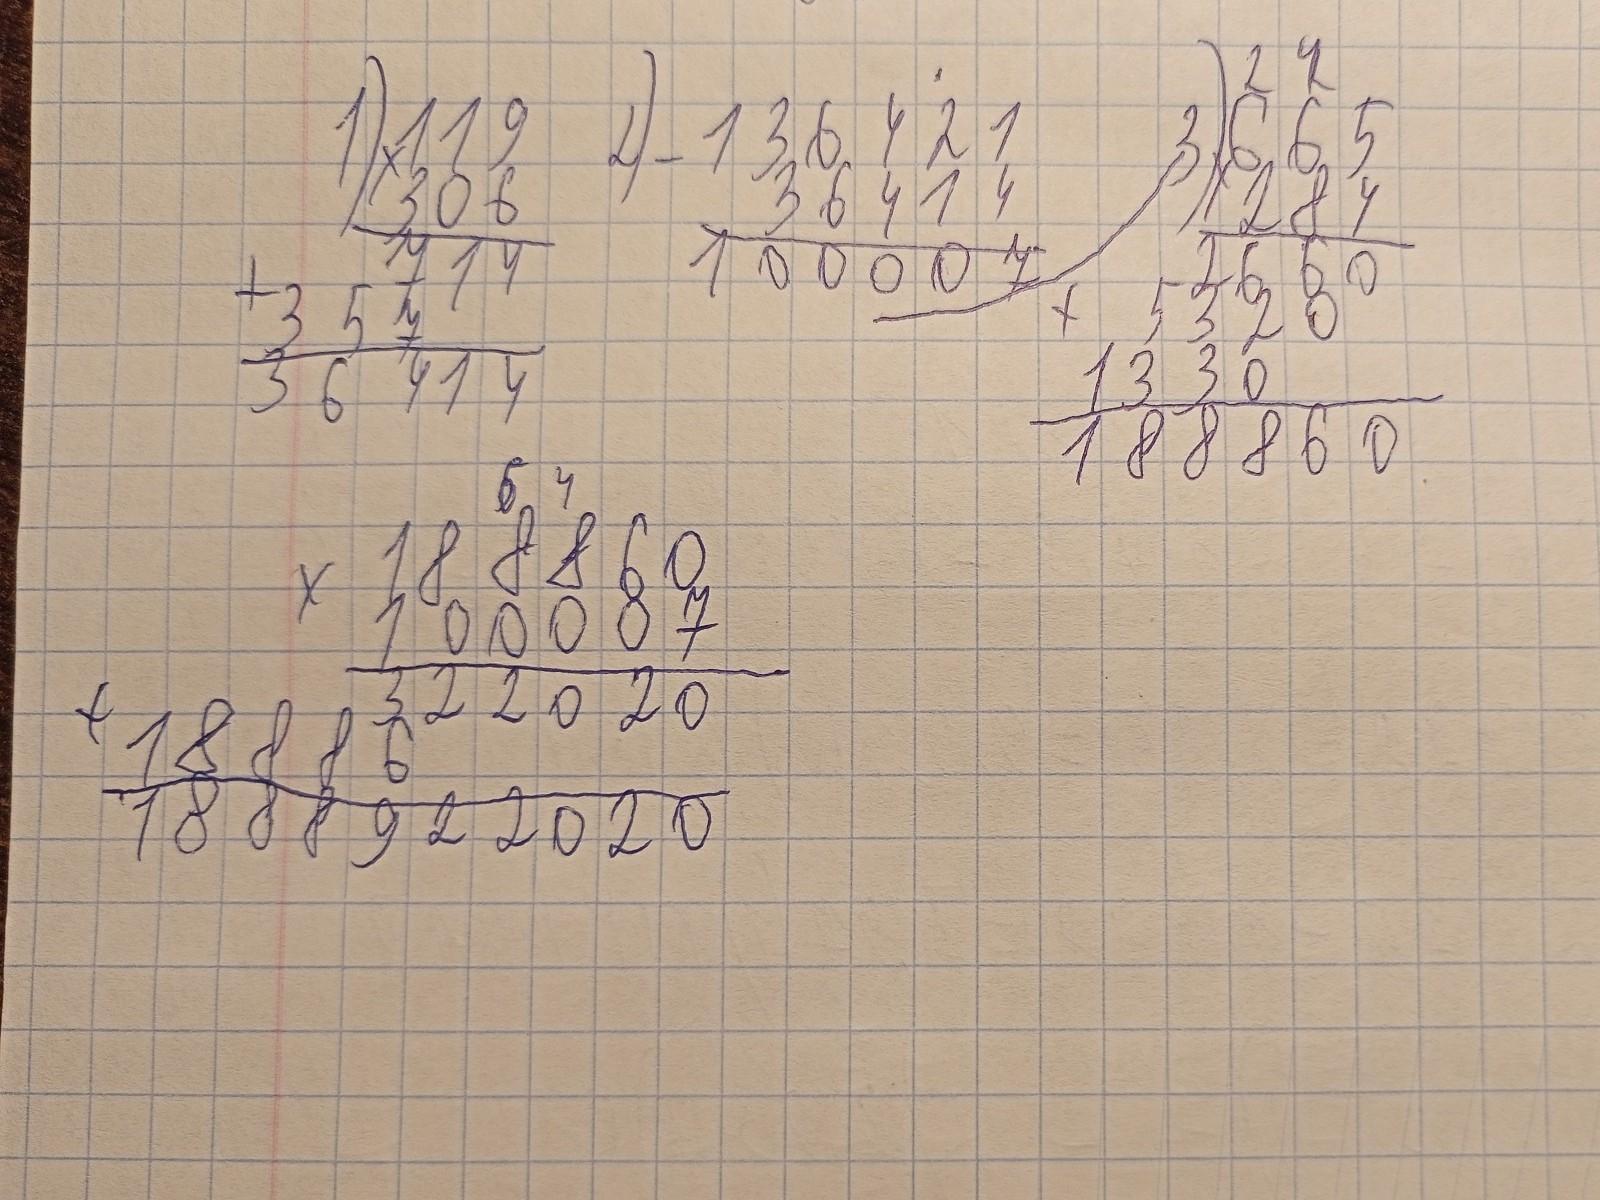 1) × 119
306
714
+ 357
36414
2) - 136421
36414
100007
24
3) × 665
284
2660
+ 5320
1330
188860
6 4
× 188860
100007
322020
+ 18886
1888922020